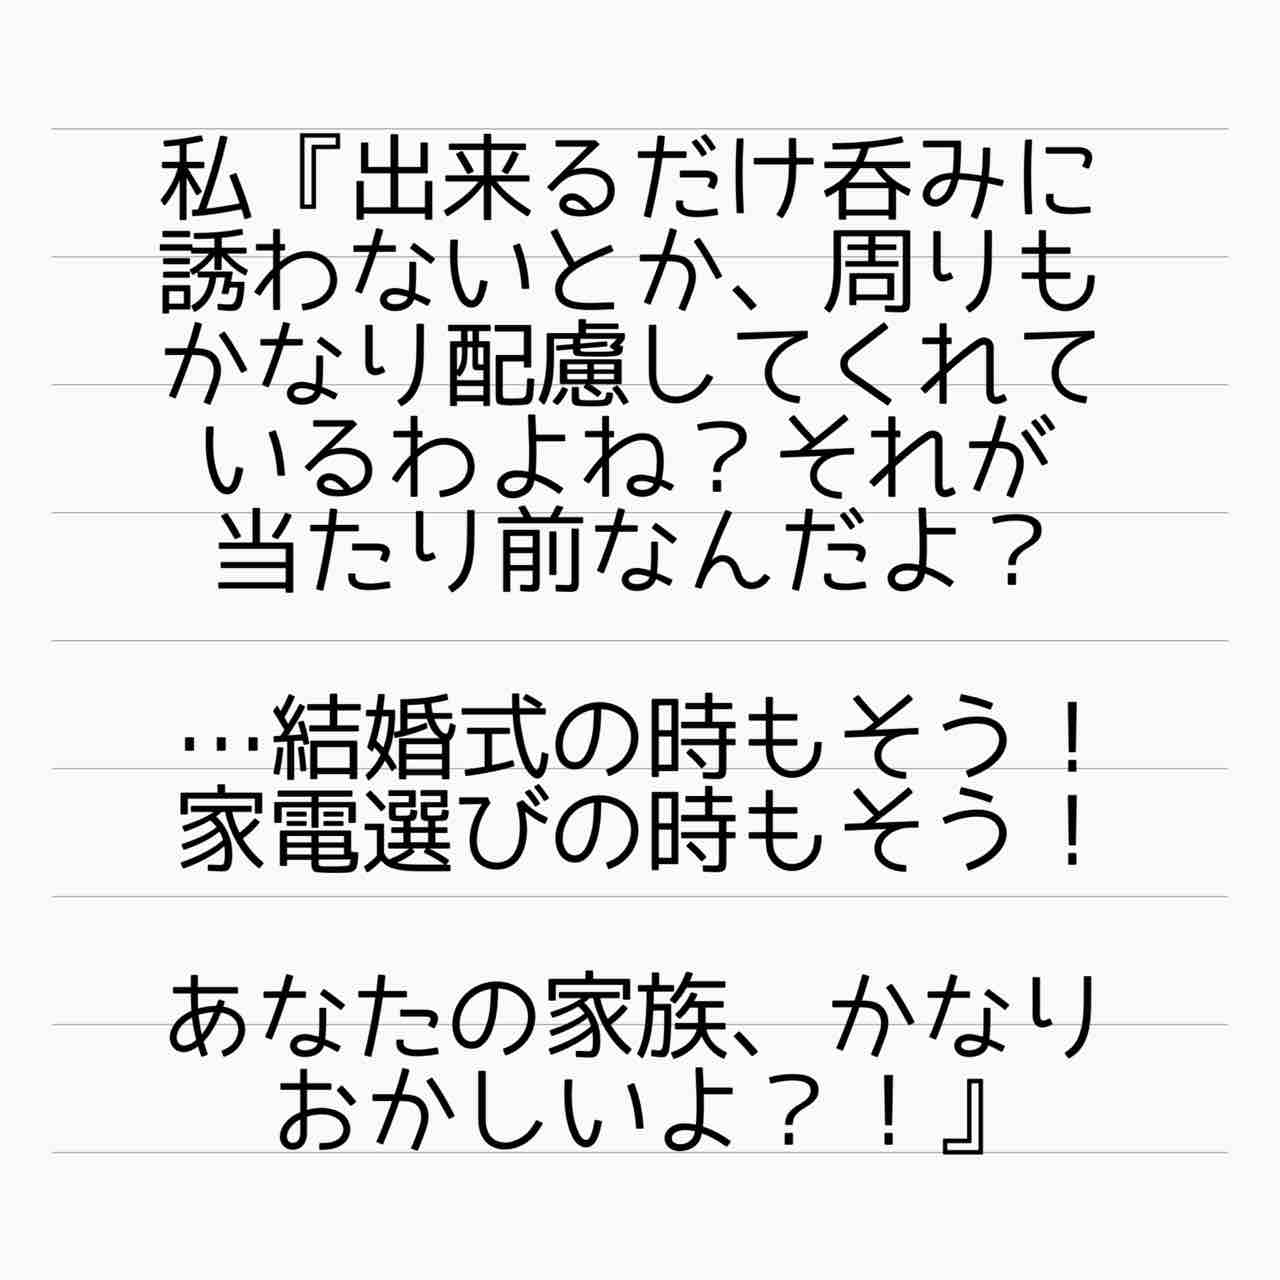 私『出来るだけ呑みに
誘わないとか、周りも
かなり配慮してくれて
いるわよね？それが
当たり前なんだよ？
…結婚式の時もそう！
家電選びの時もそう！
あなたの家族、かなり
おかしいよ？！』